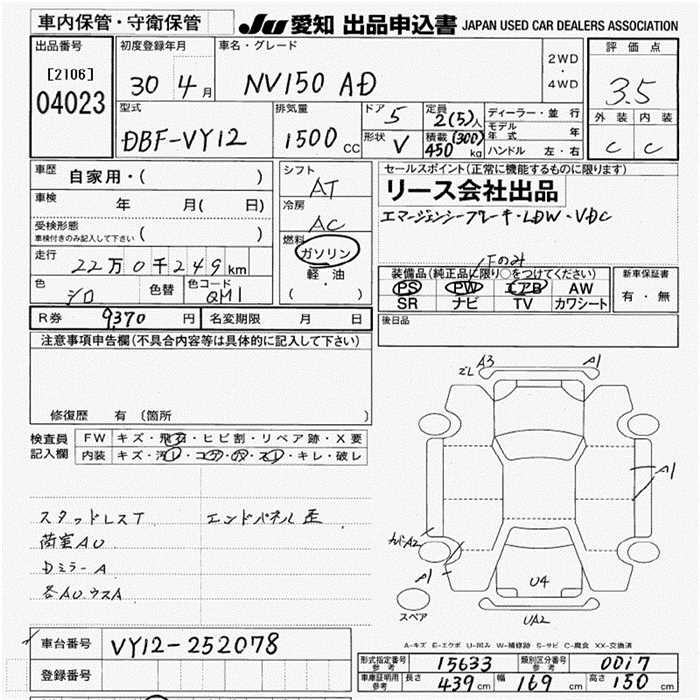 車内保管・守衛保管
JU 愛知 出品申込書 JAPAN USED CAR DEALERS ASSOCIATION
出品番号 [2106] 04023
初度登録年月 30 4月
車名・グレード NV150 AD
2WD・4WD
評価点 3.5
外装 内装
C C
型式 DBF-VY12
排気量 1500 CC
ドア 5
形状 V
定員 2(5)人
積載 (300) 450 kg
ディーラー・並行
モデル年式 年
ハンドル 左・右
車歴 自家用・( )
車検 年 月( 日)
受検形態 車検付きのみ記入して下さい ( )
走行 22万0千249km
色 シロ 色替 色コード QM1
シフト AT
冷房 AC
燃料 ガソリン
軽油
( ・ )
セールスポイント(正常に機能するものに限ります)
リース会社出品
エマージェンシーブレーキ・LDW・VDC
下のみ
装備品(純正品に限り○をつけてください)
PS PW エアB AW
SR ナビ TV カワシート
新車保証書
有・無
後日品
R券 9370 円 名変期限 月 日
注意事項申告欄(不具合内容等は具体的に記入して下さい)
修復歴 有 (箇所 )
検査員記入欄
FW キズ・飛石・ヒビ割・リペア跡・X要
内装 キズ・汚レ・コゲ・穴・スレ・キレ・破レ
スタッドレスT エンドパネル歪
荷室AU
Dミラー A
各AU ウスA
A3
A1
A1
A2
A1
U4
UA2
スペア
A-キズ E-エクボ U-凹み W-補修跡 S-サビ C-腐食 XX-交換済
車台番号 VY12-252078
登録番号
形式指定番号 参考 15633 類別区分番号 参考 0017
車庫証明用 参考 長さ 439cm 幅 169cm 高さ 150cm